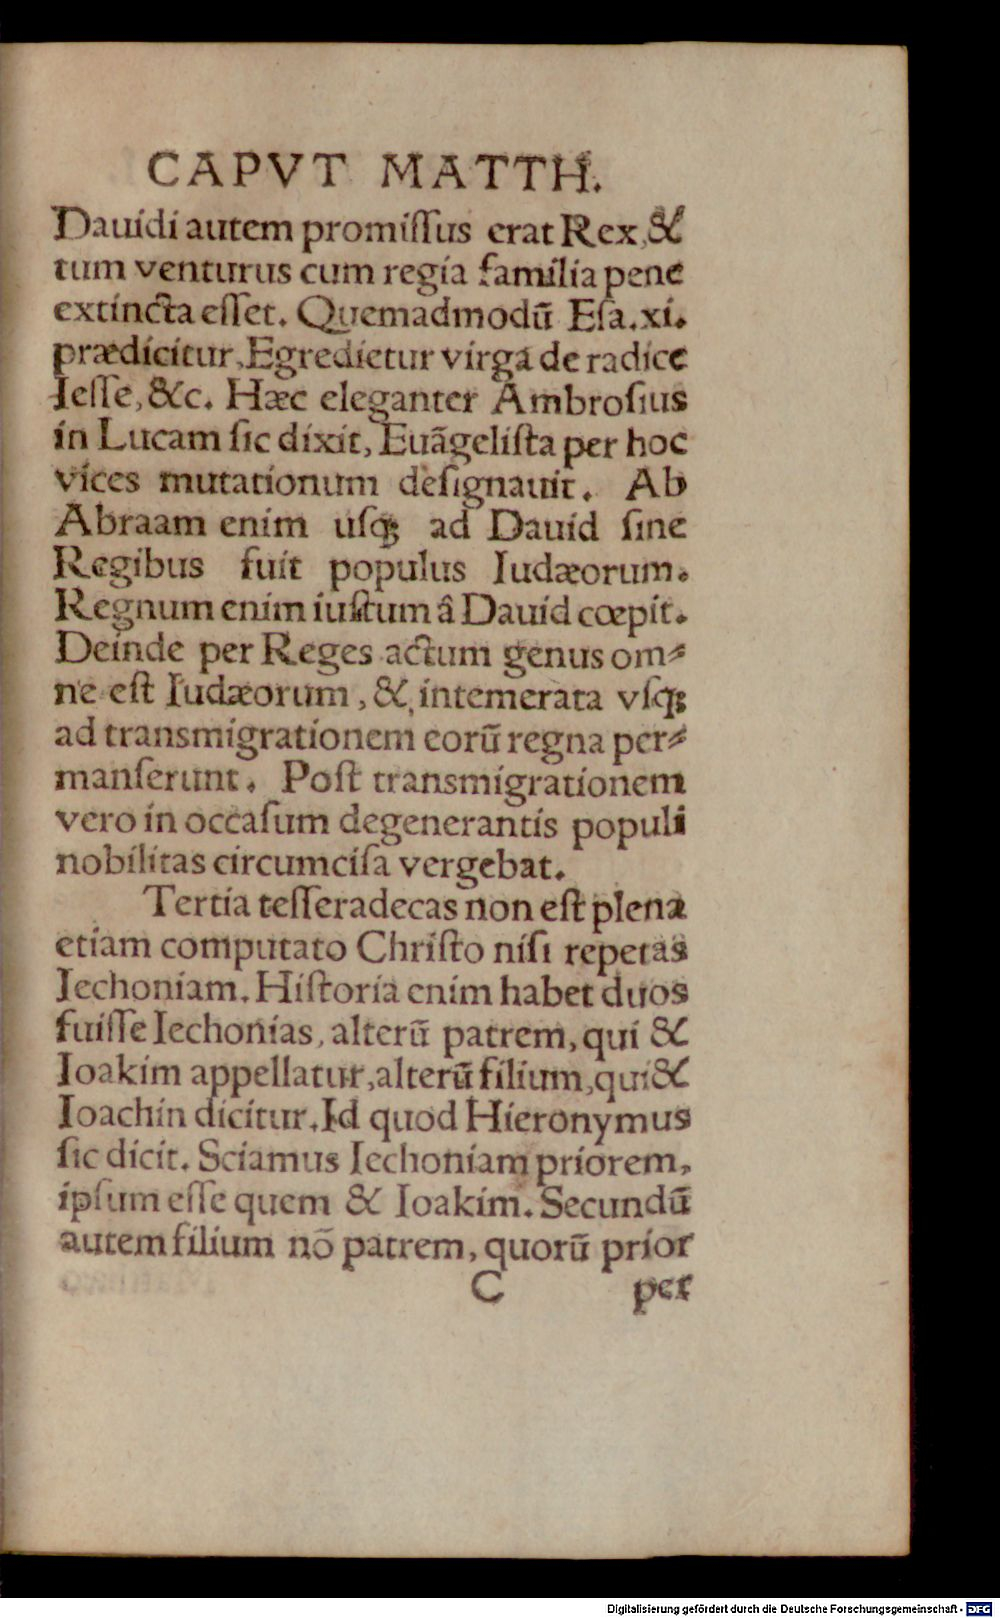 CAPVT MATTH.
Dauidi autem promiſſus erat Rex, &
tum venturus cum regia familia pene
extincta eſſet. Quemadmodū Eſa. xi.
prædicitur, Egredietur virga de radice
Ieſſe, &c. Hæc eleganter Ambroſius
in Lucam ſic dixit, Euāgeliſta per hoc
vices mutationum deſignauit. Ab
Abraam enim uſq; ad Dauid ſine
Regibus fuit populus Iudæorum.
Regnum enim iuſtum â Dauid cœpit.
Deinde per Reges actum genus om⸗
ne eſt Iudæorum, & intemerata vſq;
ad transmigrationem eorū regna per⸗
manſerunt. Poſt transmigrationem
vero in occaſum degenerantis populi
nobilitas circumciſa vergebat.
Tertia teſſeradecas non eſt plena
etiam computato Chriſto niſi repetas
Iechoniam. Hiſtoria enim habet duos
fuiſſe Iechonias, alterū patrem, qui &
Ioakim appellatur, alterū filium, qui &
Ioachin dicitur. Id quod Hieronymus
ſic dicit. Sciamus Iechoniam priorem,
ipſum eſſe quem & Ioakim. Secundū
autem filium nō patrem, quorū prior
C per
Digitalisierung gefördert durch die Deutsche Forschungsgemeinschaft - DFG